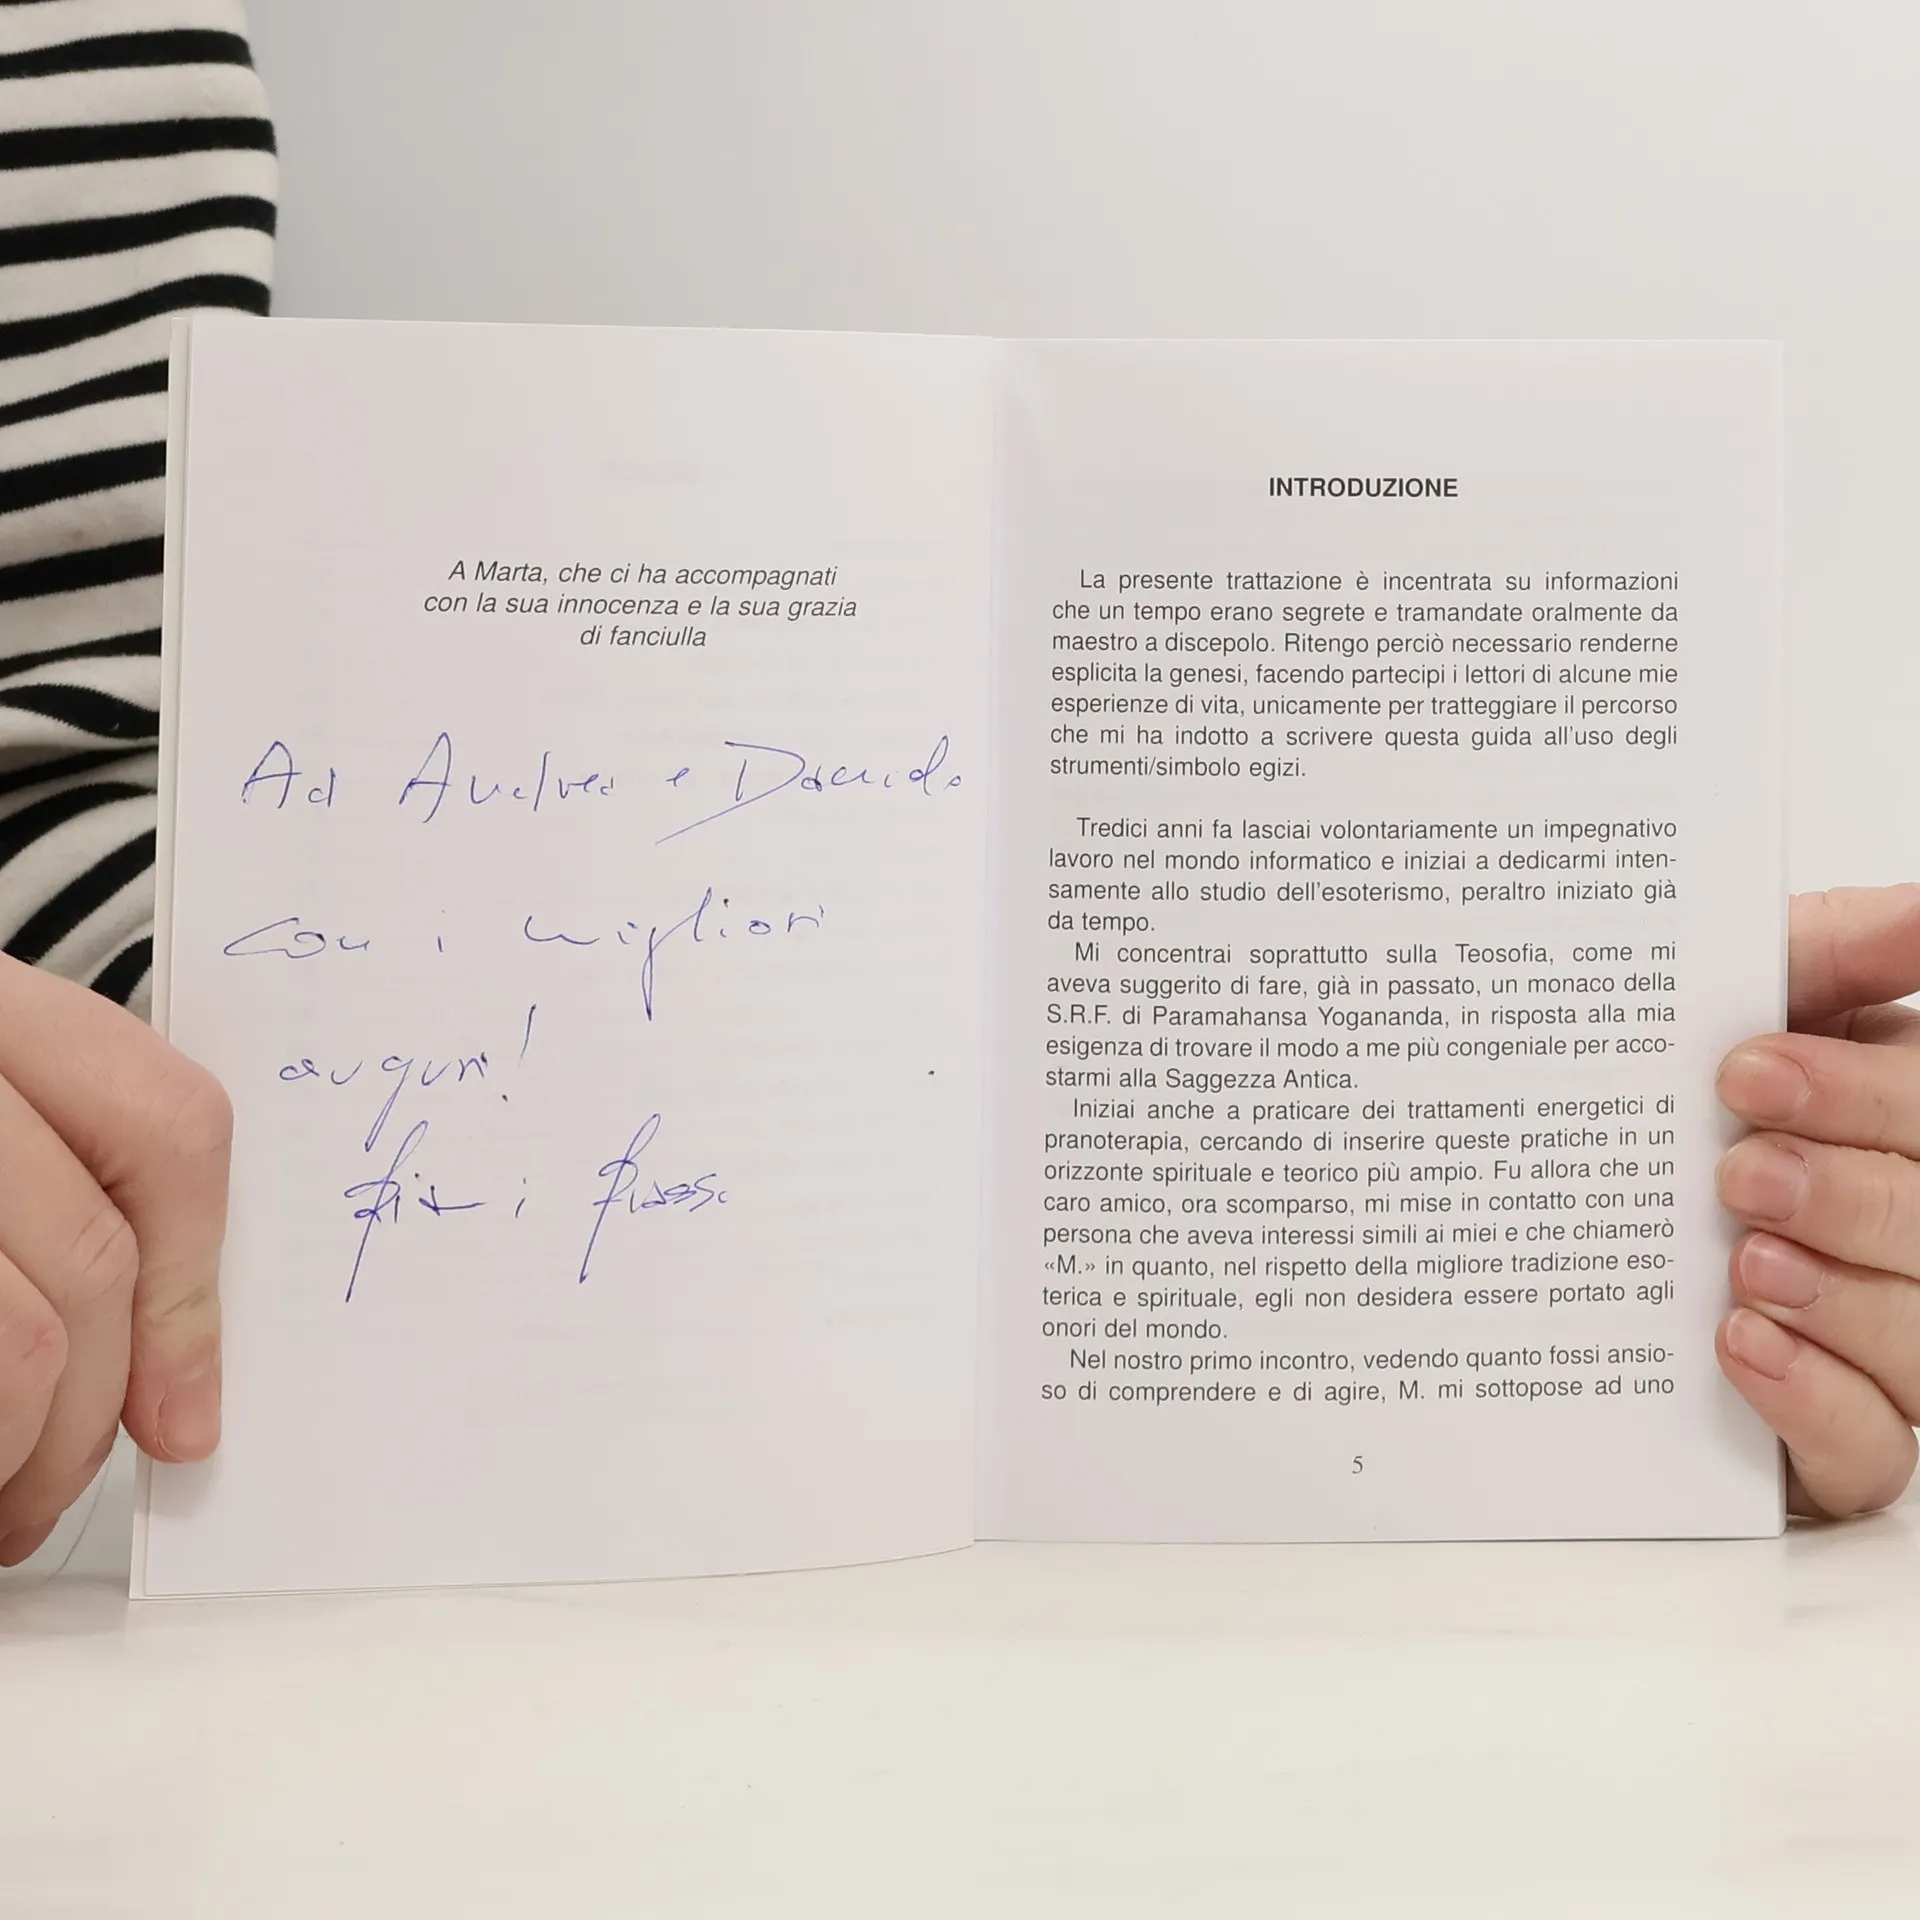 A Marta, che ci ha accompagnati
con la sua innocenza e la sua grazia
di fanciulla
Ad Andrea e
con i migliori
auguri!
INTRODUZIONE
La presente trattazione è incentrata su informazioni
che un tempo erano segrete e tramandate oralmente da
maestro a discepolo. Ritengo perciò necessario renderne
esplicita la genesi, facendo partecipi i lettori di alcune mie
esperienze di vita, unicamente per tratteggiare il percorso
che mi ha indotto a scrivere questa guida all'uso degli
strumenti/simbolo egizi.
Tredici anni fa lasciai volontariamente un impegnativo
lavoro nel mondo informatico e iniziai a dedicarmi inten-
samente allo studio dell'esoterismo, peraltro iniziato già
da tempo.
Mi concentrai soprattutto sulla Teosofia, come mi
aveva suggerito di fare, già in passato, un monaco della
S.R.F. di Paramahansa Yogananda, in risposta alla mia
esigenza di trovare il modo a me più congeniale per acco-
starmi alla Saggezza Antica.
Iniziai anche a praticare dei trattamenti energetici di
pranoterapia, cercando di inserire queste pratiche in un
orizzonte spirituale e teorico più ampio. Fu allora che un
caro amico, ora scomparso, mi mise in contatto con una
persona che aveva interessi simili ai miei e che chiamerò
«M.» in quanto, nel rispetto della migliore tradizione eso-
terica e spirituale, egli non desidera essere portato agli
onori del mondo.
Nel nostro primo incontro, vedendo quanto fossi ansio-
so di comprendere e di agire, M. mi sottopose ad uno
5